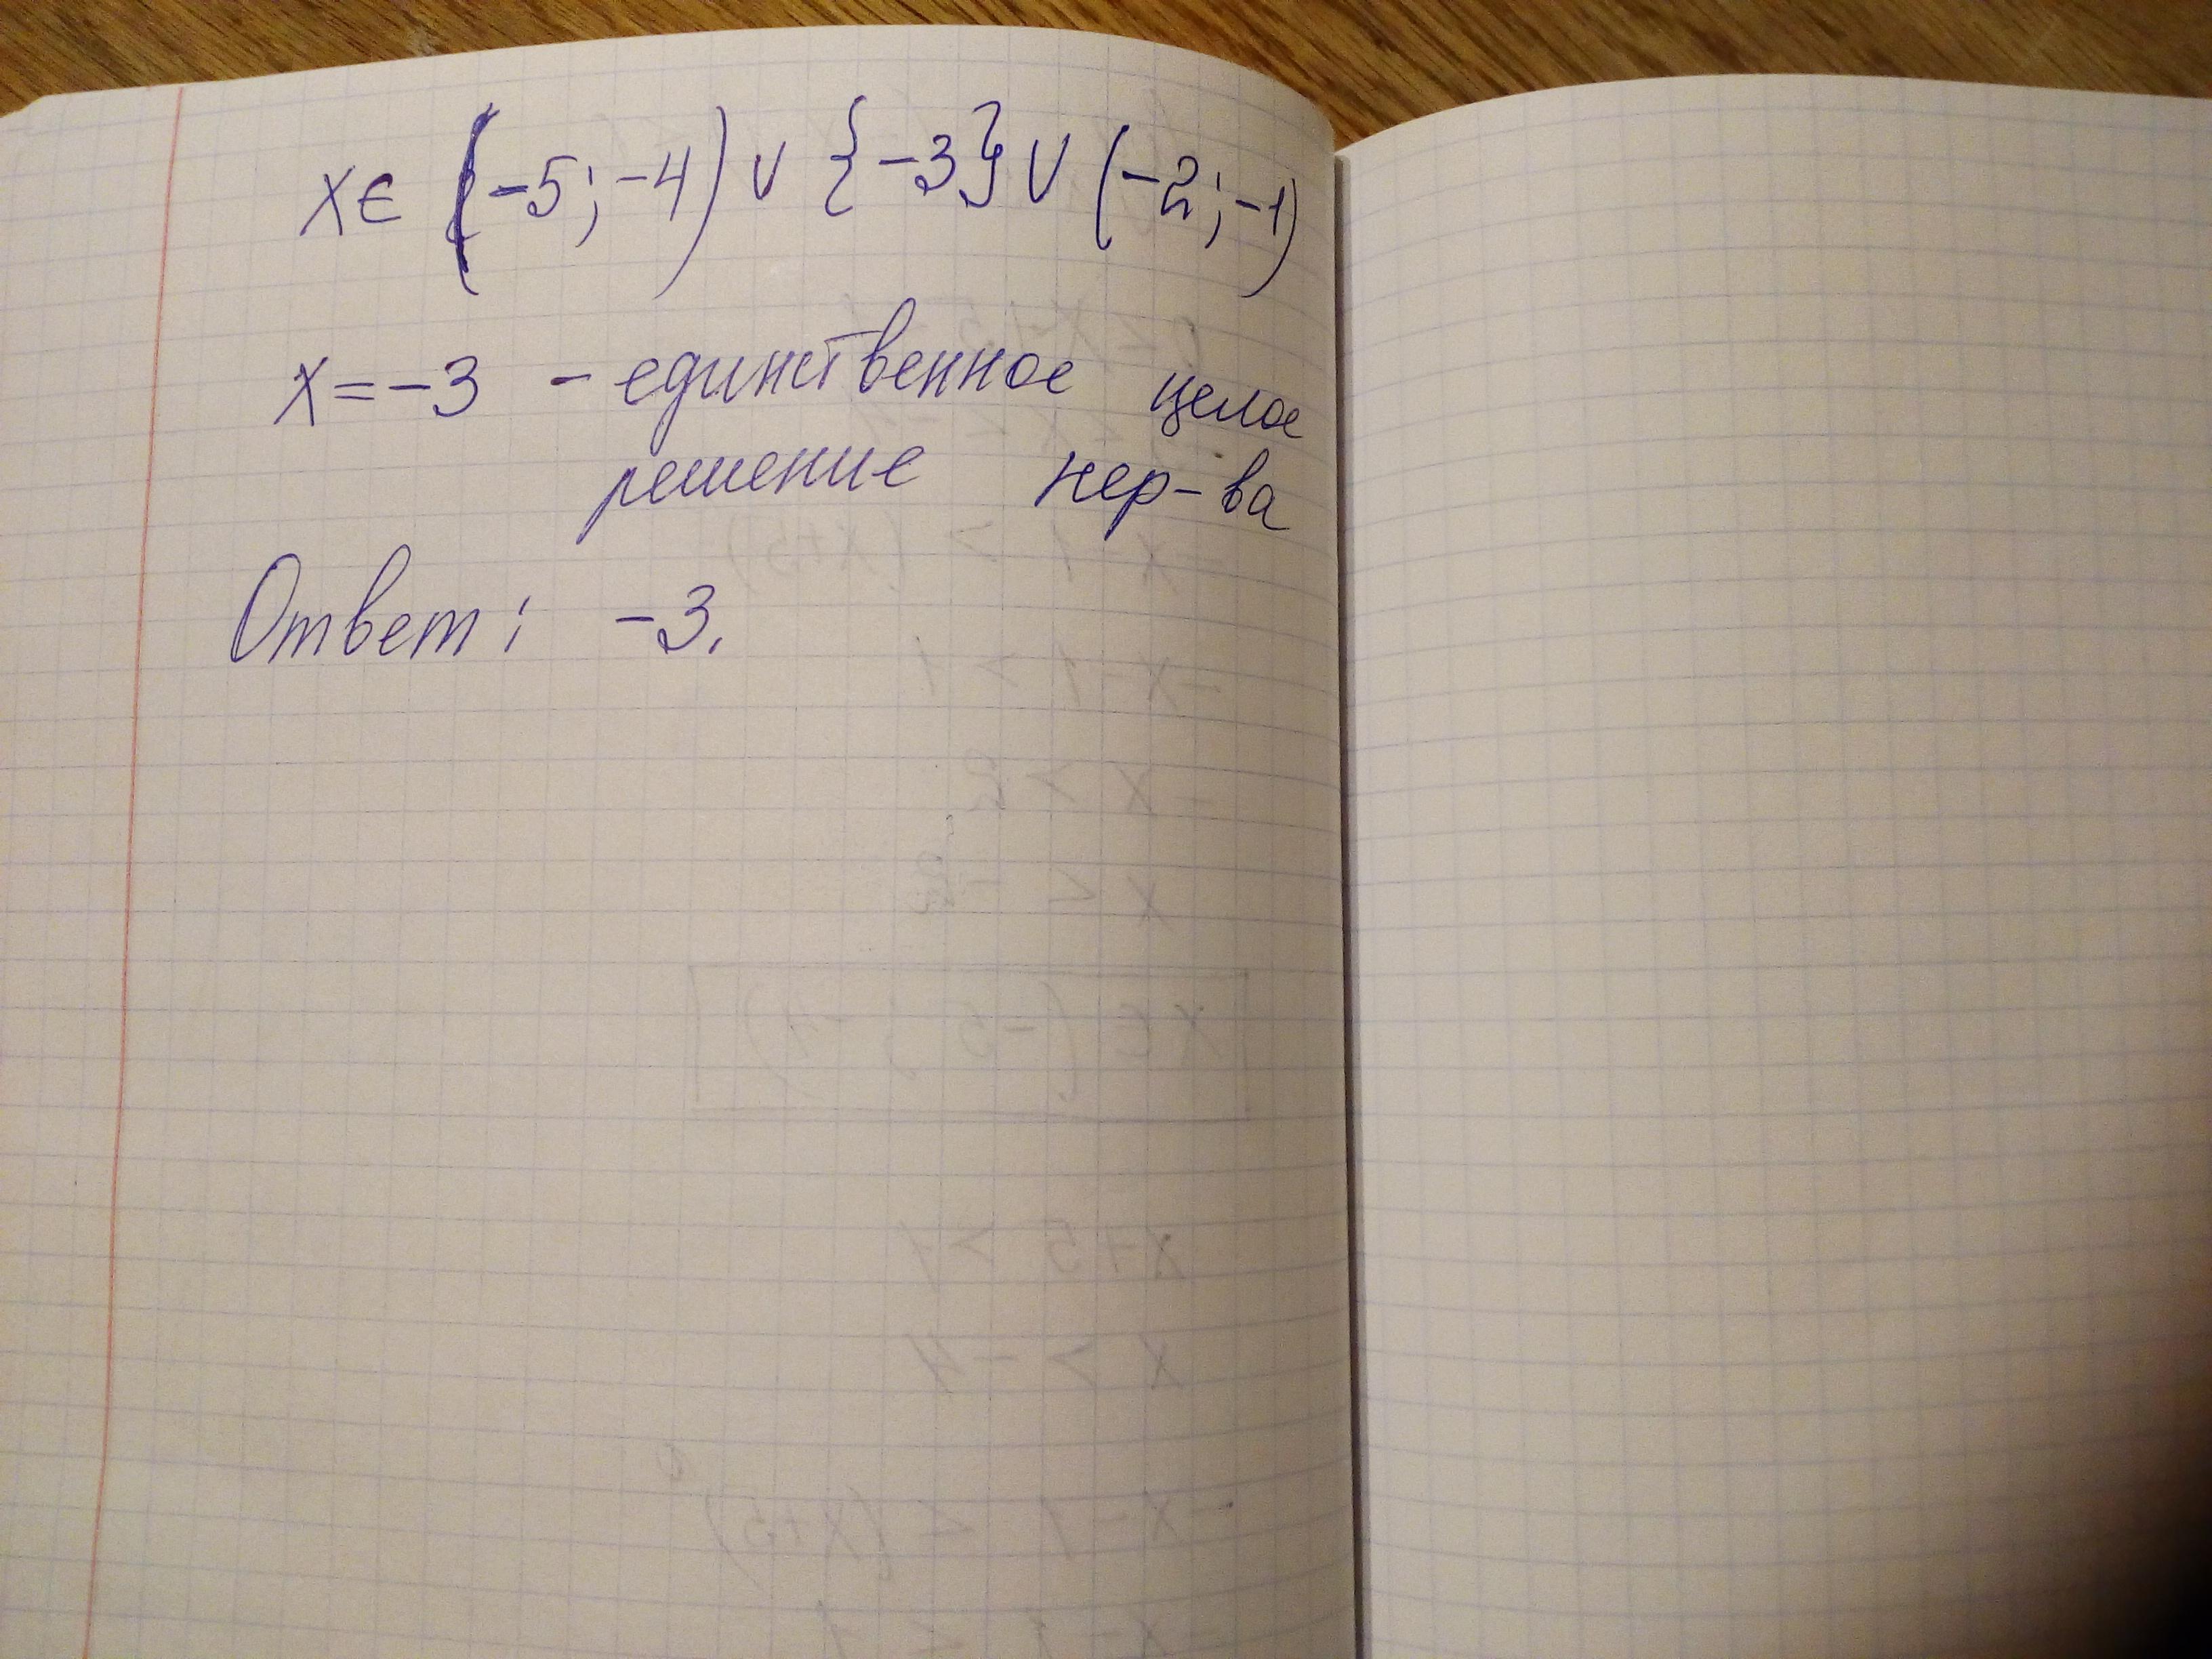 x∈ (-5; -4) ∪ {-3} ∪ (-2; -1)
x = -3 - единственное целое
решение нер-ва
Ответ: -3.